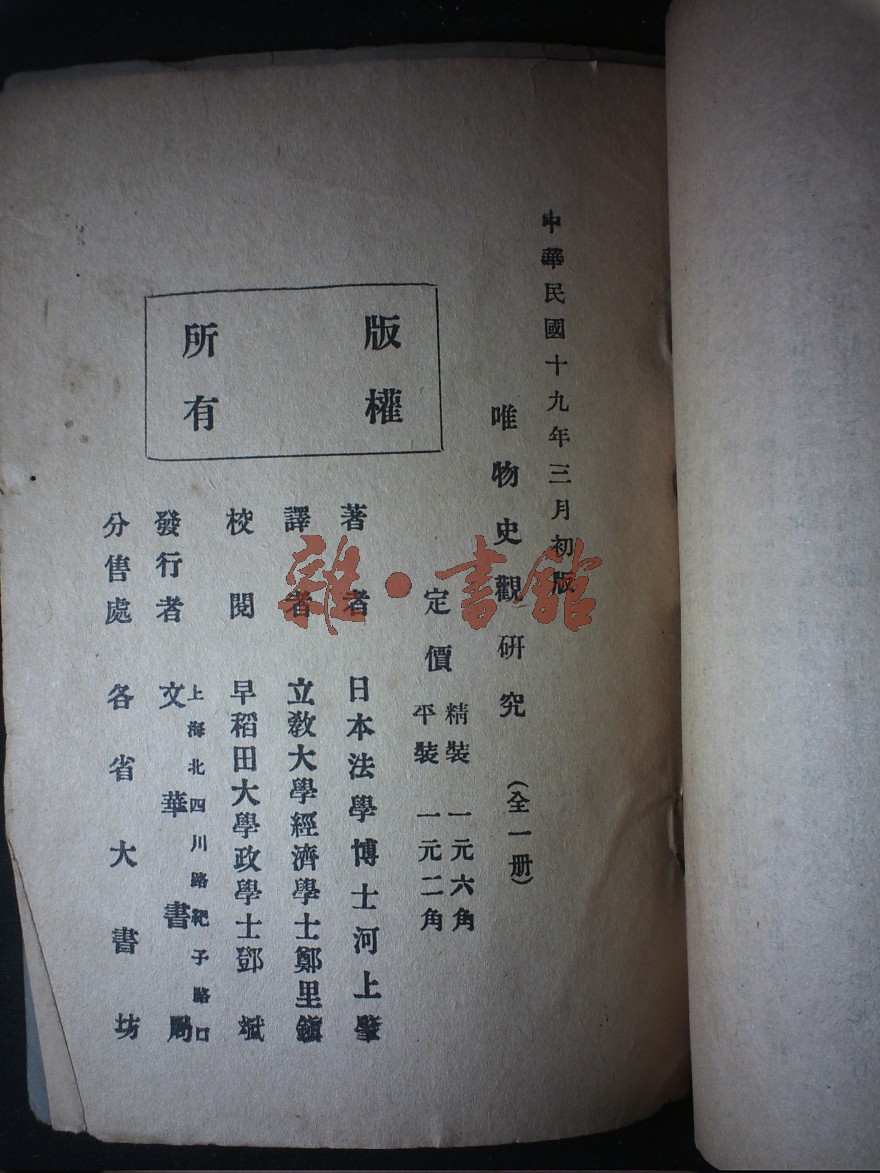 中華民國十九年三月初版
唯物史觀研究(全一册)
定價
精裝 一元六角
平裝 一元二角
版權
所有
著者 日本法學博士河上肇
譯者 立敎大學經濟學士鄭里鎭
校閱 早稻田大學政學士鄧斌
上海北四川路杷子路口
發行者 文華書局
分售處 各省大書坊
雜·書館